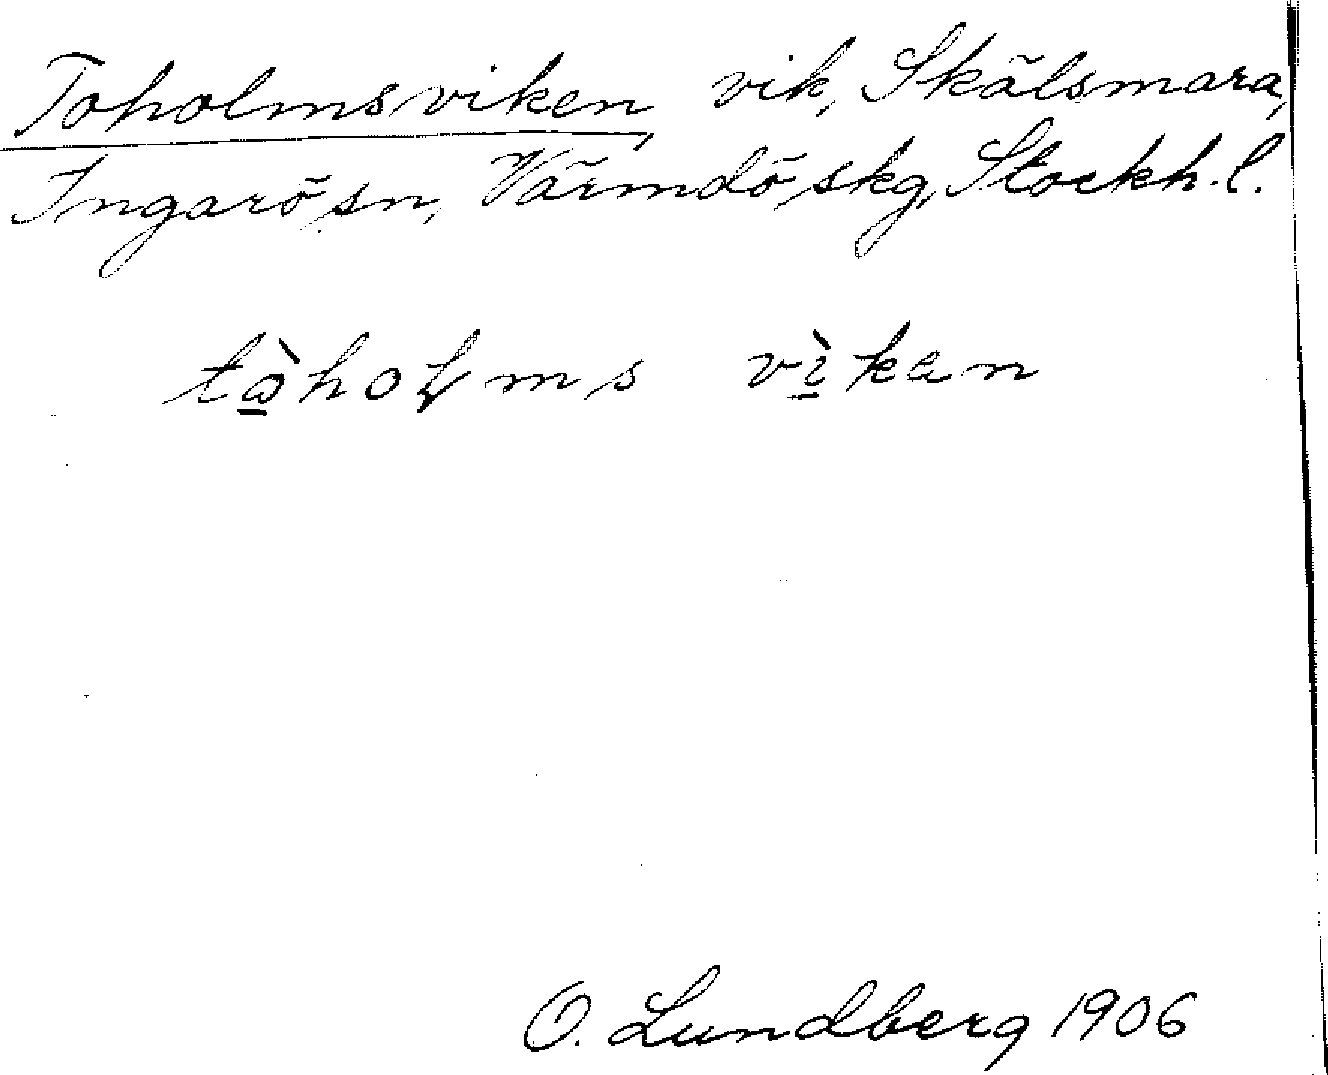 Toholmsviken, vik, Skälsmara,
Ingarö sn, Värmdö skg, Stockh. l.
tὼ̲hoɭms vì̲kan
O. Lundberg 1906